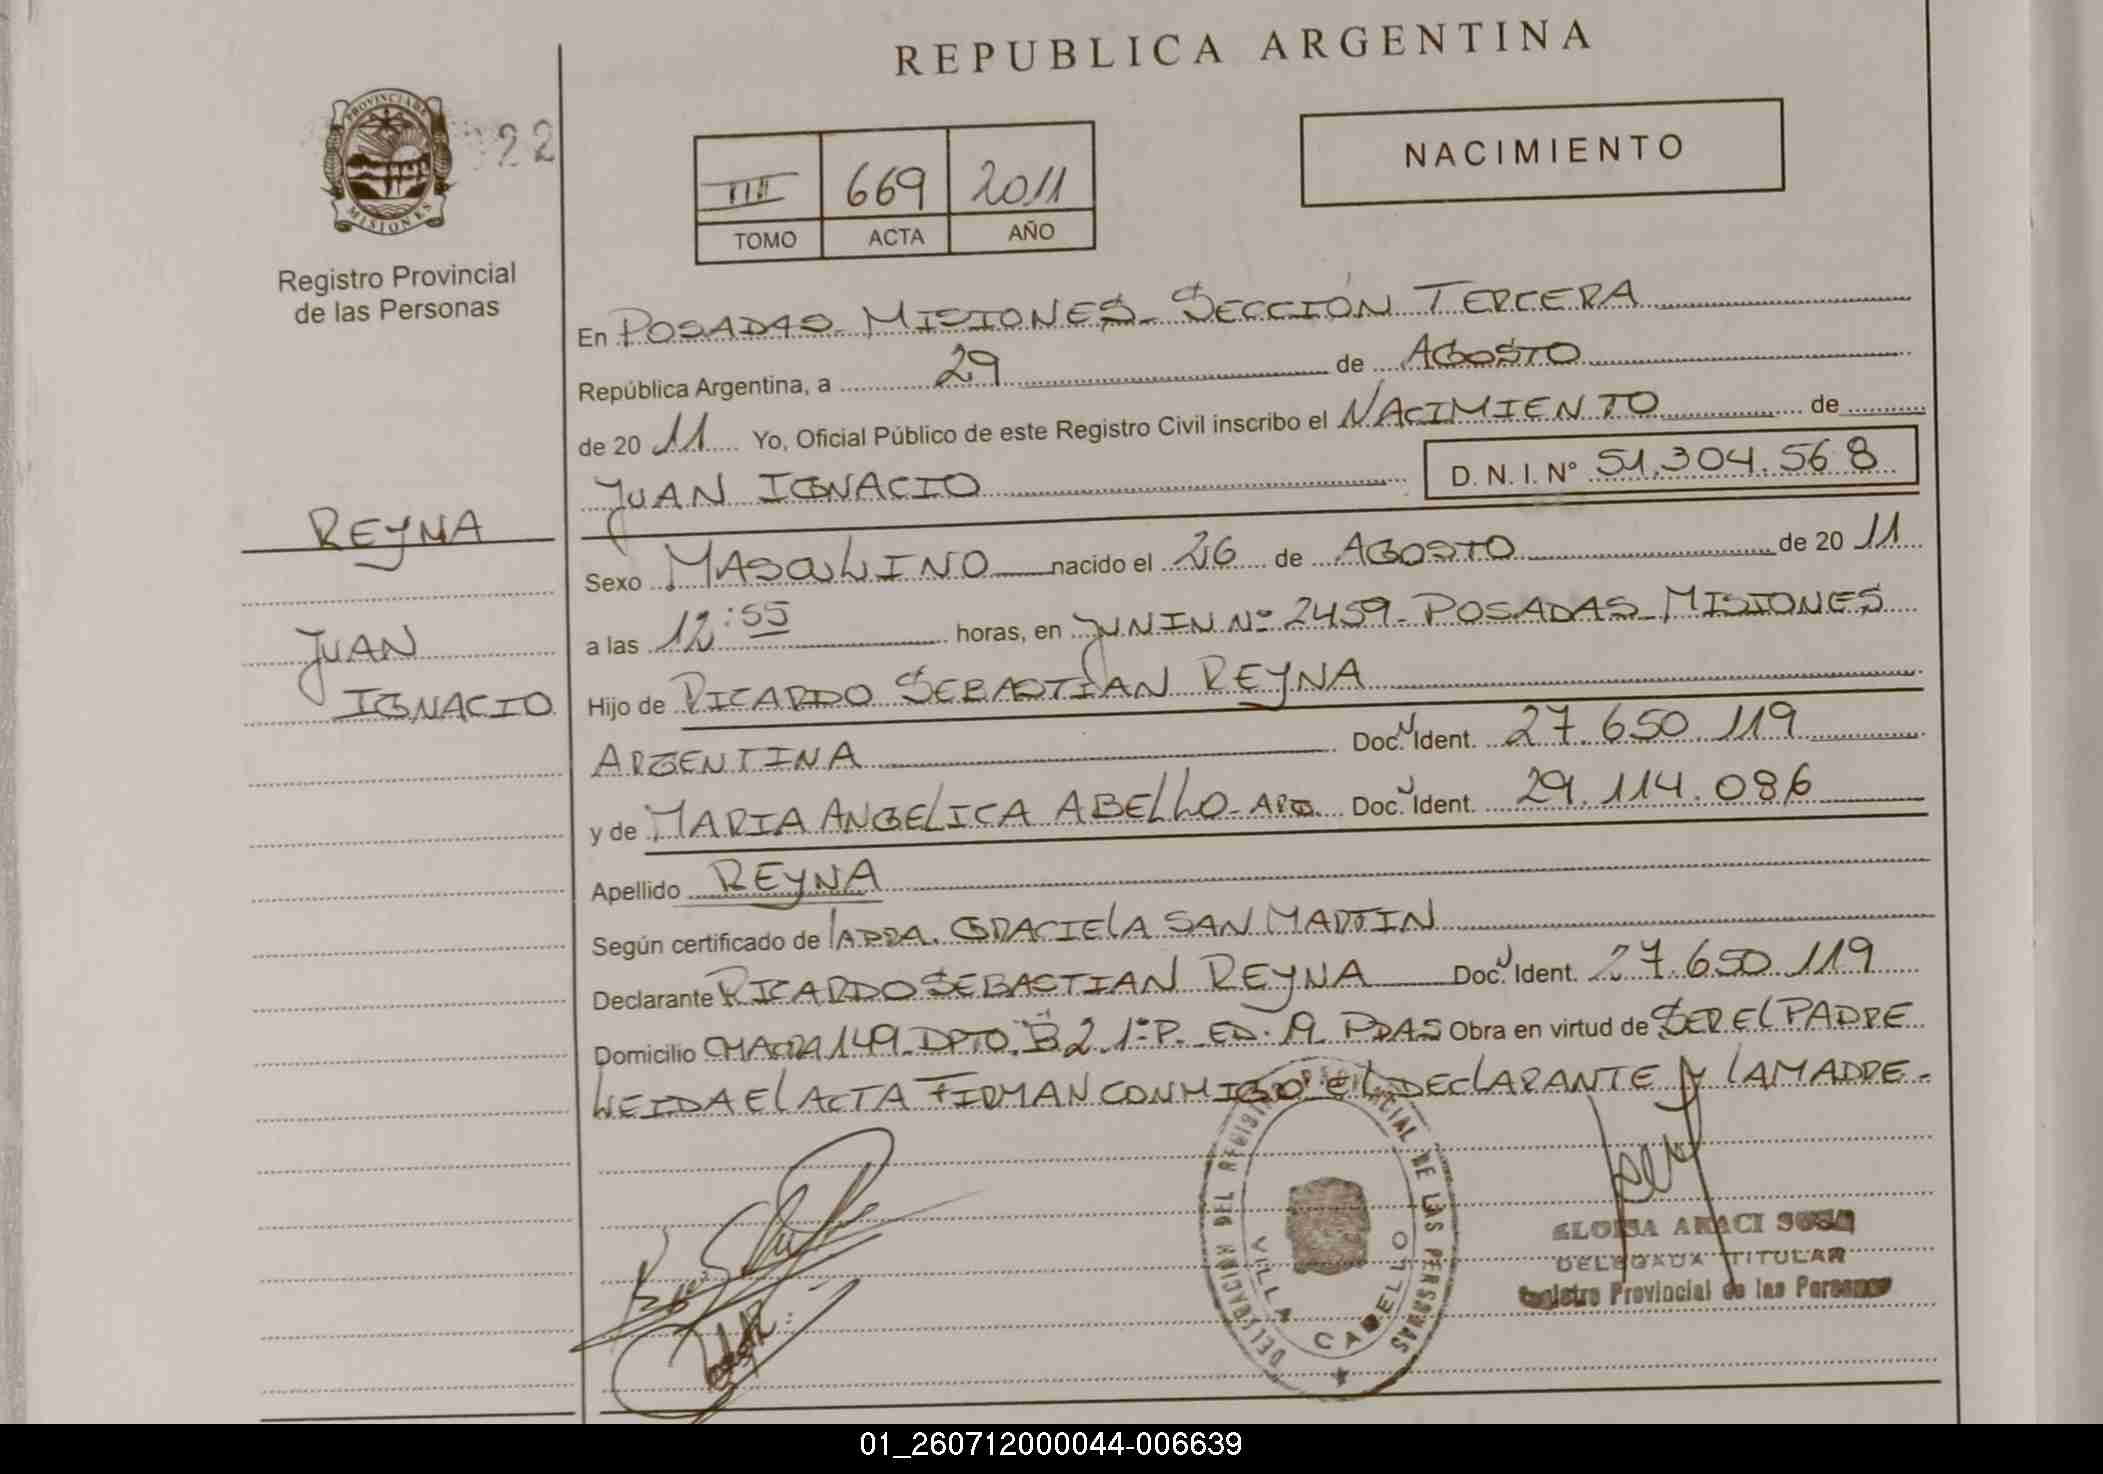 REPUBLICA ARGENTINA
PROVINCIA DE
MISIONES
22
Registro Provincial
de las Personas
III 669 2011
TOMO ACTA AÑO
NACIMIENTO
En POSADAS- MISIONES- SECCIÓN TERCERA
República Argentina, a 29 de AGOSTO
de 20 11 Yo, Oficial Público de este Registro Civil inscribo el NACIMIENTO de
JUAN IGNACIO D. N. I. N° 51.304.568
REYNA
JUAN
IGNACIO
Sexo MASCULINO nacido el 26 de AGOSTO de 20 11
a las 12:55 horas, en JUNIN Nº 2459- POSADAS- MISIONES
Hijo de RICARDO SEBASTIAN REYNA
ARGENTINA Doc. Ident. 27.650.119
y de MARIA ANGELICA ABELLO- ARG. Doc. Ident. 29.114.086
Apellido REYNA
Según certificado de LA DRA. GRACIELA SAN MARTIN
Declarante RICARDO SEBASTIAN REYNA Doc. Ident. 27.650.119
Domicilio CHACRA 149- DPTO. "B" 2 1º P. ED. 19 PDAS Obra en virtud de SER EL PADRE
LEIDA EL ACTA FIRMAN CONMIGO EL DECLARANTE Y LA MADRE-
DELEGACION DEL REGISTRO PROVINCIAL DE LAS PERSONAS
VILLA CABELLO
ELOISA ARACI SOSA
DELEGADA TITULAR
Registro Provincial de las Personas
01_260712000044-006639